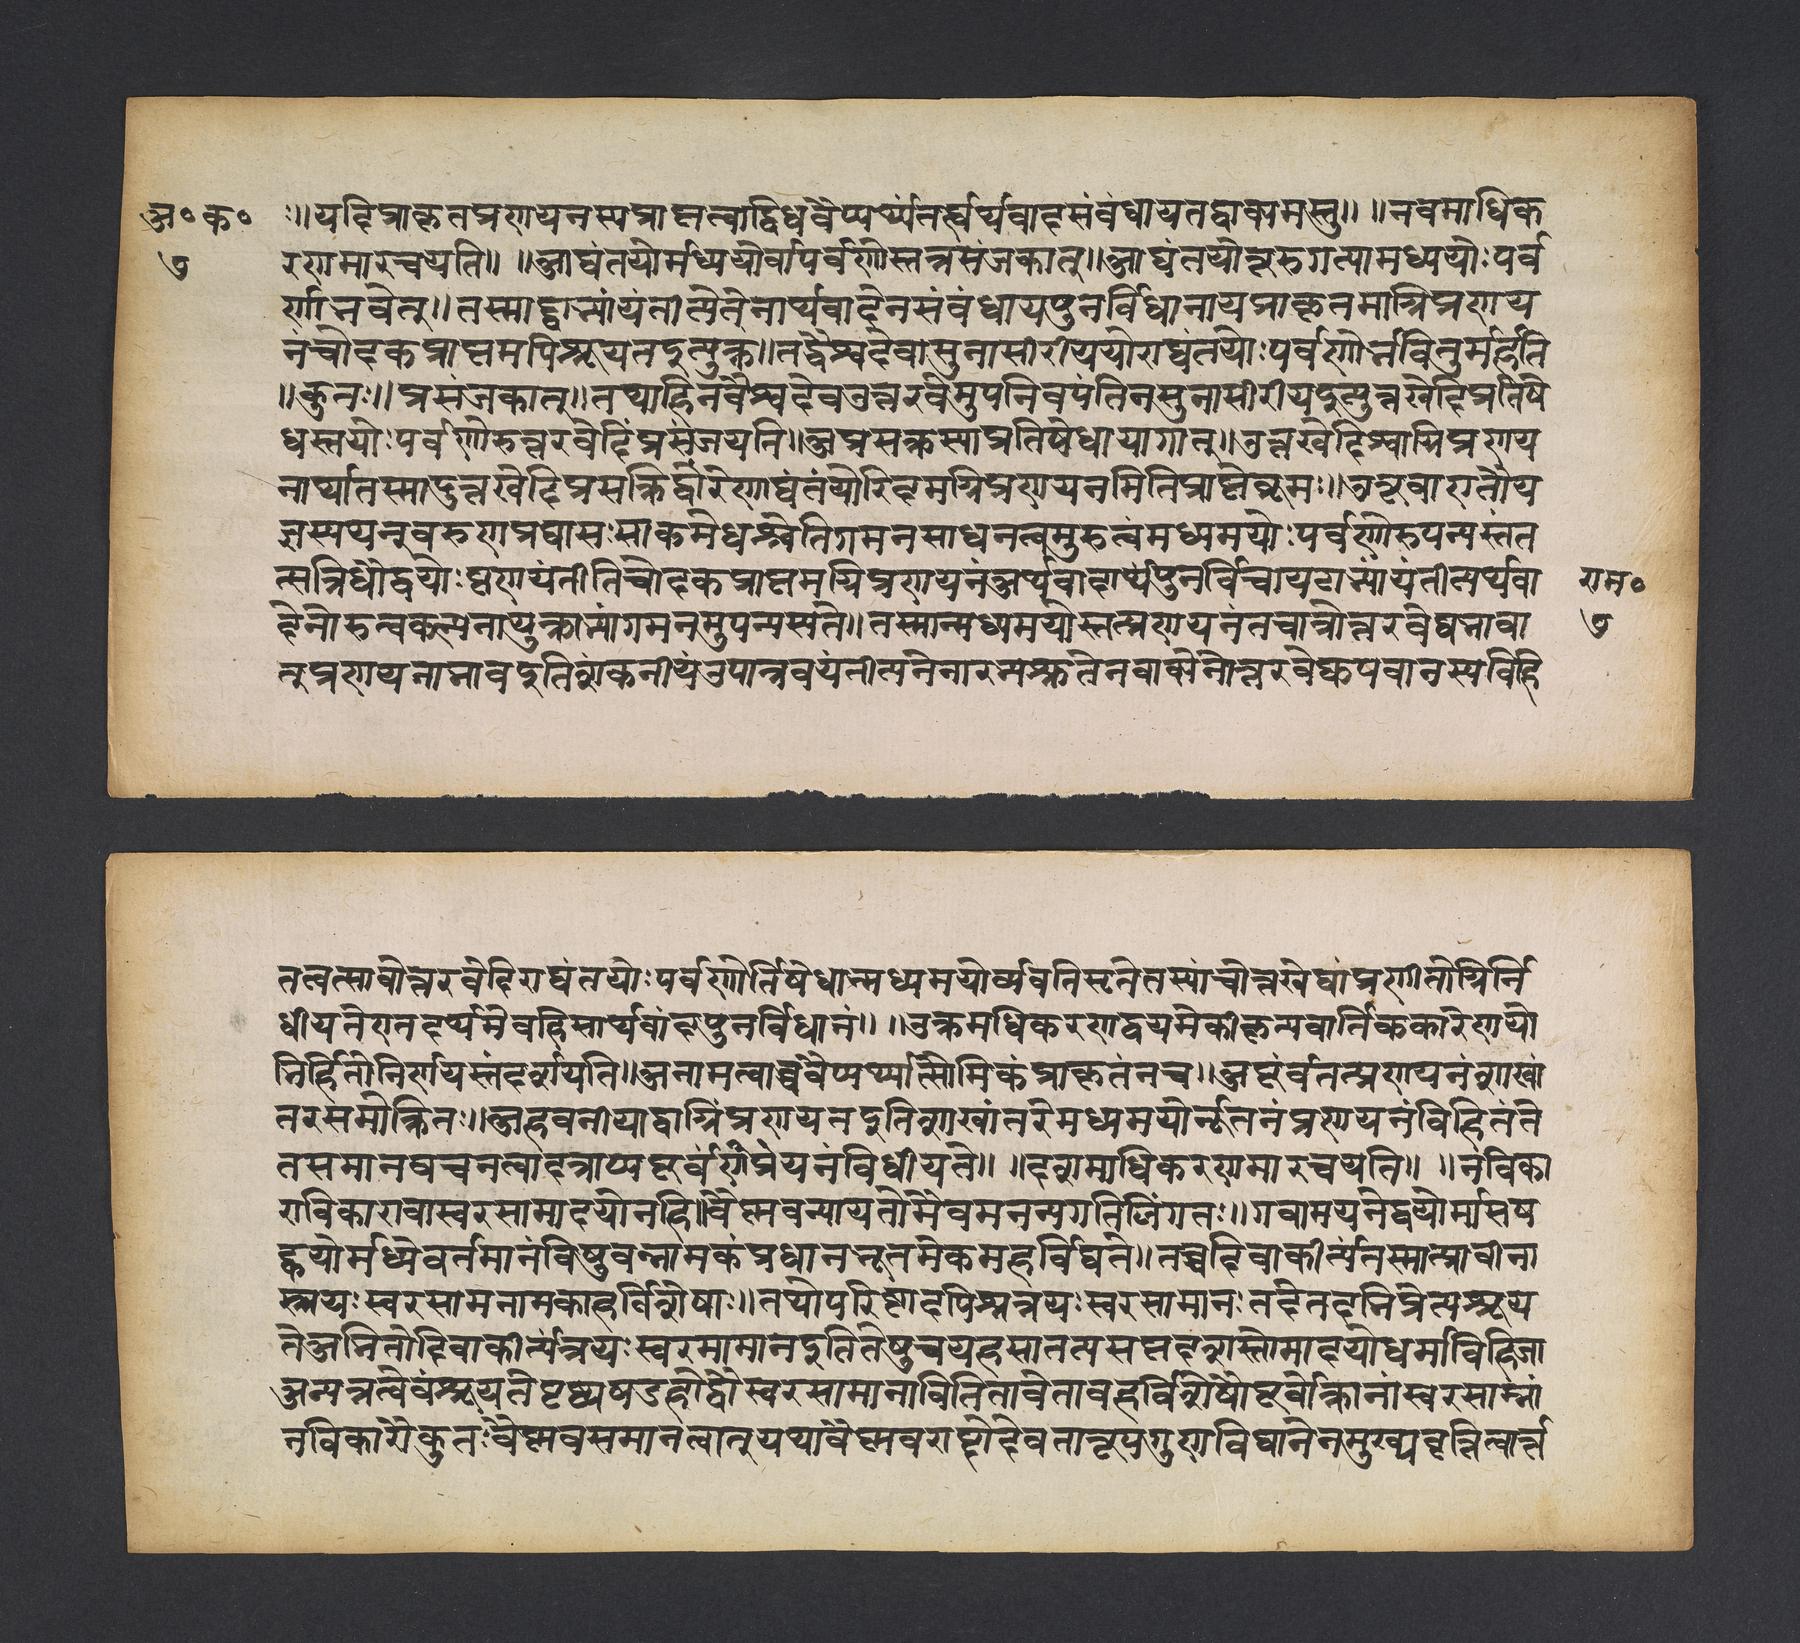 अ॰ क॰
७
ः॥यदिप्राकृतप्रणयनस्यप्राप्तत्वाद्विधिवैय्यर्थ्यंतर्ह्यर्थवादसंबंधायतद्वाक्यमस्तु॥ ॥नवमाधिक
रणमारचयति॥ ॥आद्यंतयोर्मध्ययोर्वापर्वणोस्तत्रसंजकात्॥आद्यंतयोरूरुगत्यामध्ययोःपर्व
र्णोर्भवेत्॥तस्माद्द्वाभ्यांयंतीत्येतेनार्थवादेनसंबंधायपुनर्विधानायप्राकृतमाग्निप्रणय
नंचोदकप्राप्तमपिश्रूयतइत्युक्त॥तद्वैश्वदेवासुनासीरीययोराद्यंतयोःपर्वणोर्भवितुमर्हति
॥कुतः॥प्रसंजकात्॥तथाहिनवैश्वदेवउत्तरवेमुपनिवपंतिनसुनासीरीयइत्युत्तरवेदिप्रतिषे
धस्तयोःपर्वणोरुत्तरवेदिंप्रसंजयति॥अप्रसक्तस्याप्रतिषेधायोगात्॥उत्तरवेदिश्चाग्निप्रणय
नार्थातस्मादुत्तरवेदिप्रसक्तिद्वारेणाद्यंतंयोरिदमग्निप्रणयनमितिप्राप्तेब्रूमः॥ऊरूवाएतौय
ज्ञस्ययद्वरुणप्रघासःसाकमेधश्चेतिगमनसाधनत्वमुरुत्वंमध्यमयोःपर्वणोरुपन्यस्तंत
त्सन्निधौद्वयोःप्रणयंतीतिचोदकप्राप्तमग्निप्रणयनंअर्थवादार्थंपुनर्विचायद्वाभ्यांयंतीत्यर्थवा
देनोरुत्वकल्पनायुक्ताभ्यांगमनमुपन्यस्यते॥तस्मान्मध्यमयोस्तत्प्रणयनंतचात्रोत्तरवेद्यभावा
त्प्रणयनाभावइतिशंकनीयंउपात्रवयंतीत्यनेनारभ्यश्रुतेनवाक्येनोत्तरवेद्युपवानस्यविहि
राम॰
७
तत्वत्साचोत्तरवेदिराद्यंतयोःपर्वणोर्निषेधान्मध्यमयोर्व्यवतिष्टतेतस्यांचोत्तरवेद्यांप्रणीतोग्निर्नि
धीयतेएतदर्थमेवहिसार्थवादंपुनर्विधानं॥ ॥उक्तमधिकरणद्वयमेकीकृत्यवार्तिककारेणयो
भिर्हितोनिर्णयस्तंदर्शयति॥अनामत्वाच्चवैय्यर्थ्यात्सौमिकंप्राकृतंनच॥अपूर्वंतत्प्रणयनंशाखां
तरसमीक्षितः॥आहवनीयाद्वाग्निंप्रणयतइतिशाखांतरेमध्यमयोर्नूतनंप्रणयनंविहितंते
तसमानवचनत्वादत्राप्यपूर्वप्रणयनंविधीयते॥ ॥दशमाधिकरणमारचयति॥ ॥नंविका
राविकारावास्वरसामादयोनहि॥वैष्णवन्यायतोमैवमनन्यगतिलिंगतः॥गवामयनेद्वयोर्मासष
ट्कयोर्मध्येवर्तमानंविषुवन्नामकंप्रधानभूतमेकमहर्विद्यते॥तच्चदिवाकीर्त्यंतस्मात्प्राचीना
स्त्रयःस्वरसामनामकाहर्विशेषाः॥तथोपरिष्टादपिश्चत्रयःस्वरसामानःतदेतदभिप्रेत्यश्रूय
तेअभितोदिवाकीर्त्यंत्रयःस्वरमामानइतितेषुचयहसातत्यसप्तदशस्तोमादयोधर्माविहिता
अन्यत्रत्वेवंश्रूयतेपृष्ठ्यषडहोद्वौस्वरसामानावितितावेतावहर्विशेषौपूर्वोक्तानांस्वरसाम्नां
नविकारौकुतःवैष्णवसमानत्वात्यथावैष्णवशब्दोदेवतारूपगुणविधानेनमुख्यवृत्तित्वान्न